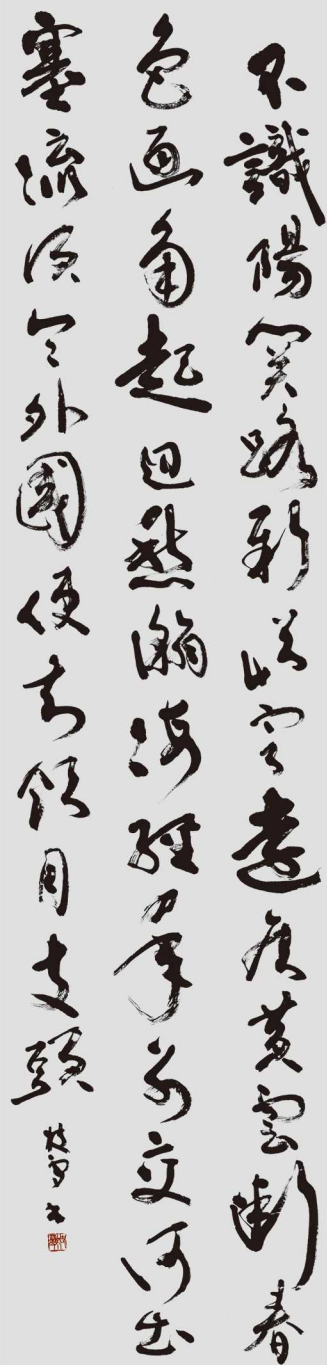 不識陽關路新從定遠侯黃雲斷春
色畫角起邊愁瀚海經年交河出
塞流須令外國使知飲月支頭
書